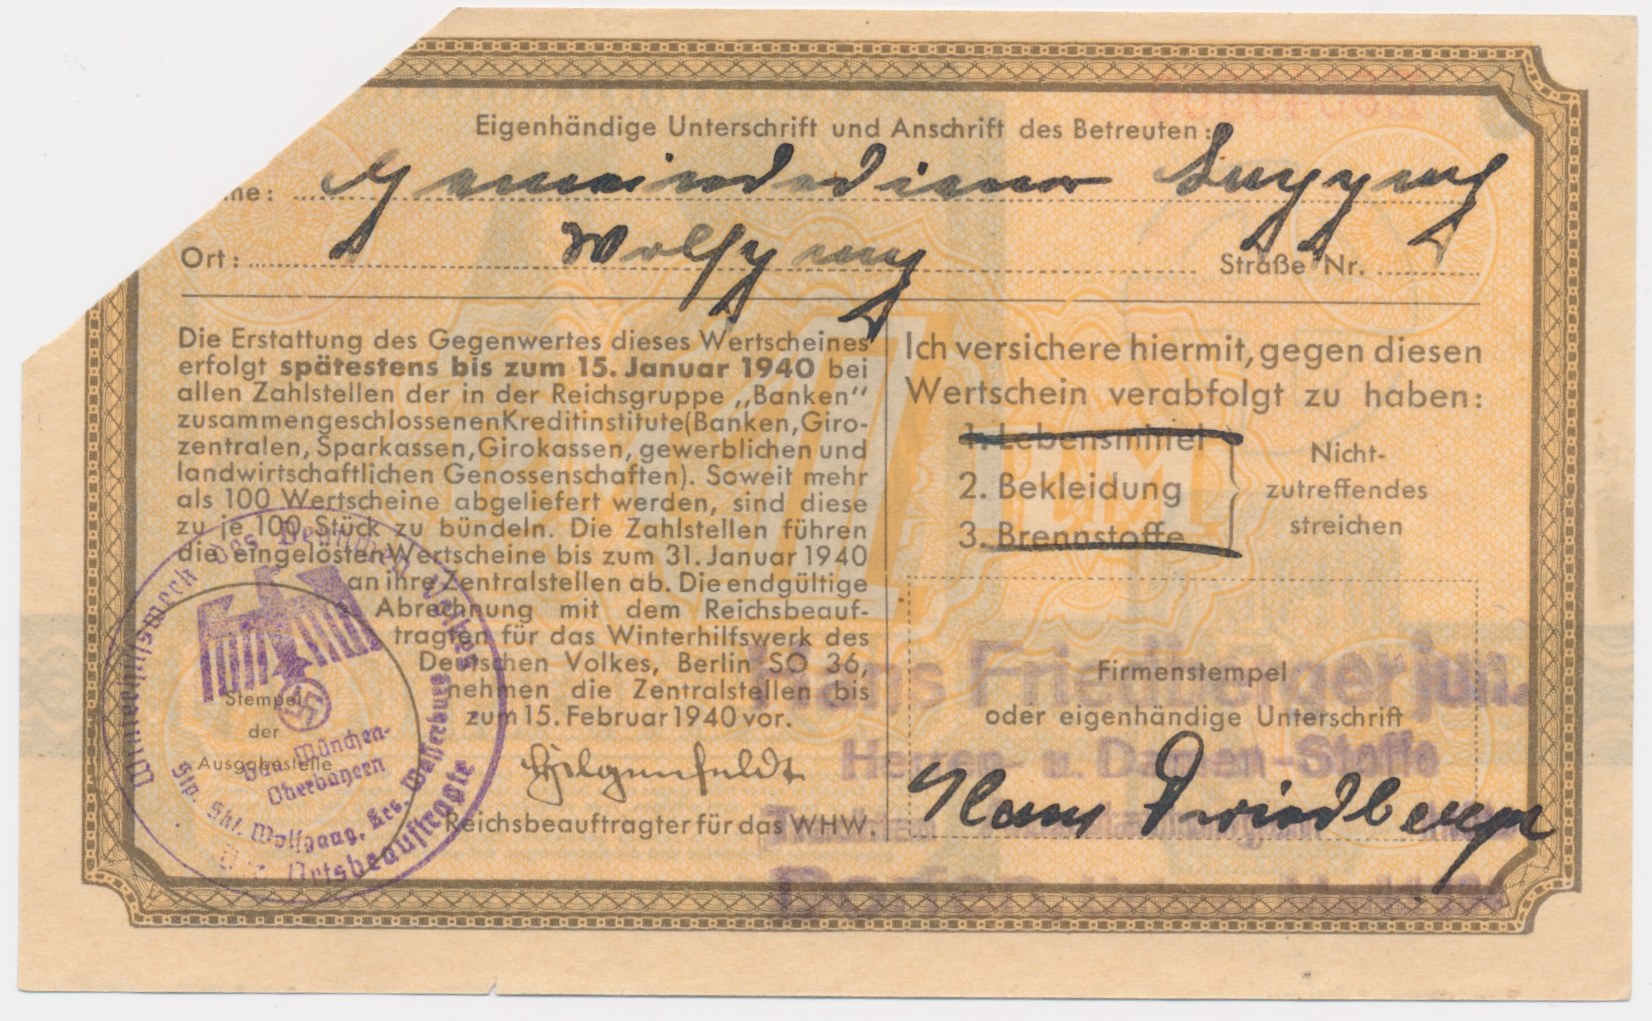 Eigenhändige Unterschrift und Anschrift des Betreuten:
me: Gemeindediener
Ort: Wolfgang Straße Nr.
Die Erstattung des Gegenwertes dieses Wertscheines
erfolgt spätestens bis zum 15. Januar 1940 bei
allen Zahlstellen der in der Reichsgruppe „Banken“
zusammengeschlossenen Kreditinstitute (Banken, Giro-
zentralen, Sparkassen, Girokassen, gewerblichen und
landwirtschaftlichen Genossenschaften). Soweit mehr
als 100 Wertscheine abgeliefert werden, sind diese
zu je 100 Stück zu bündeln. Die Zahlstellen führen
die eingelösten Wertscheine bis zum 31. Januar 1940
an ihre Zentralstellen ab. Die endgültige
Abrechnung mit dem Reichsbeauf-
tragten für das Winterhilfswerk des
Deutschen Volkes, Berlin SO 36,
nehmen die Zentralstellen bis
zum 15. Februar 1940 vor.
Hilgenfeldt
Reichsbeauftragter für das WHW.
Stempel
der
Ausgabestelle
Winterhilfswerk des Deutschen Volkes
Gau München-
Oberbayern
Stp. Skt. Wolfgang, Krs. Wasserburg
Der Ortsbeauftragte
Ich versichere hiermit, gegen diesen
Wertschein verabfolgt zu haben:
1. Lebensmittel
2. Bekleidung
3. Brennstoffe
Nicht-
zutreffendes
streichen
1 RM
Firmenstempel
oder eigenhändige Unterschrift
Hans Friedberger jun.
Herren- u. Damen-Stoffe
Hans Friedberger